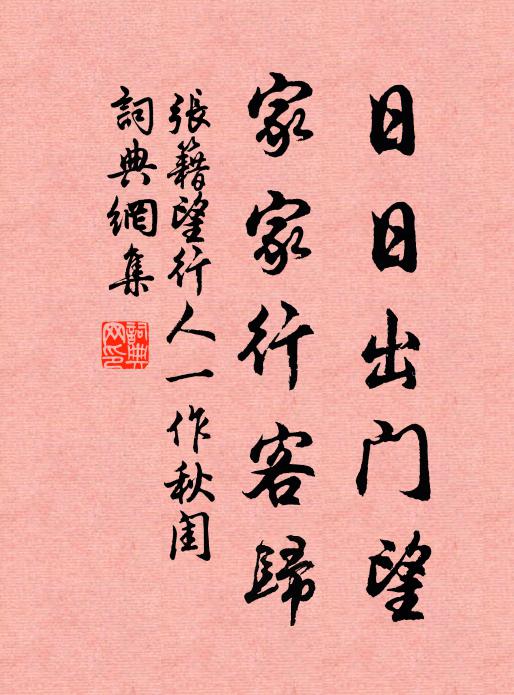 日日出门望
家家行客歸
張籍望行人一作秋闺
詞典網集
詞典网印